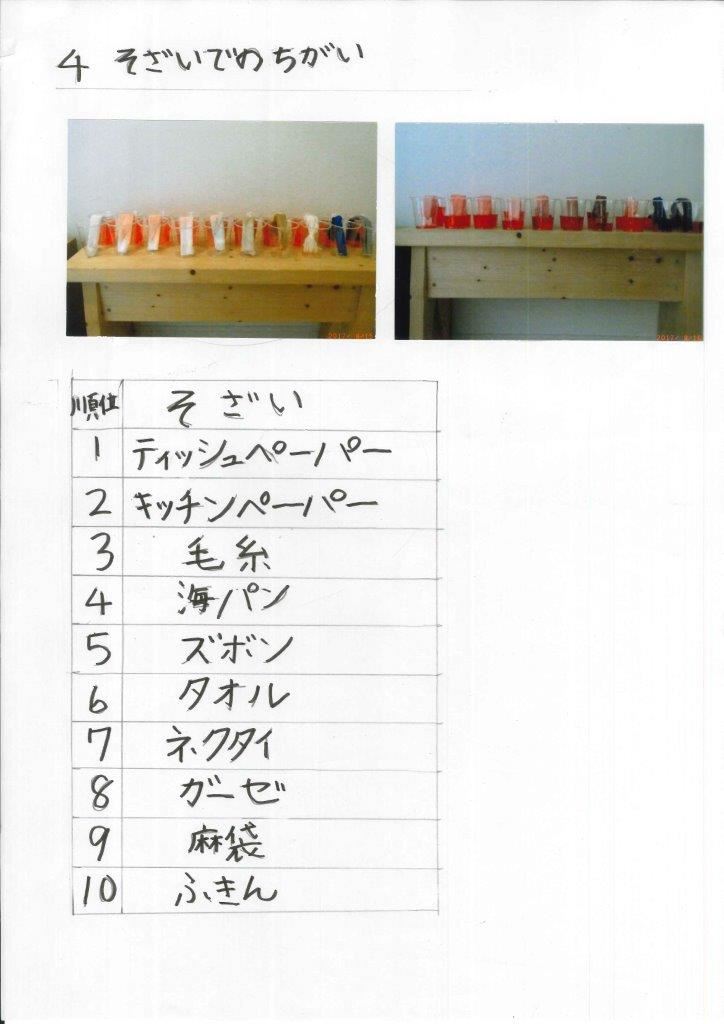 4 そざいでのちがい
順位 そざい
1 ティッシュペーパー
2 キッチンペーパー
3 毛糸
4 海パン
5 ズボン
6 タオル
7 ネクタイ
8 ガーゼ
9 麻袋
10 ふきん